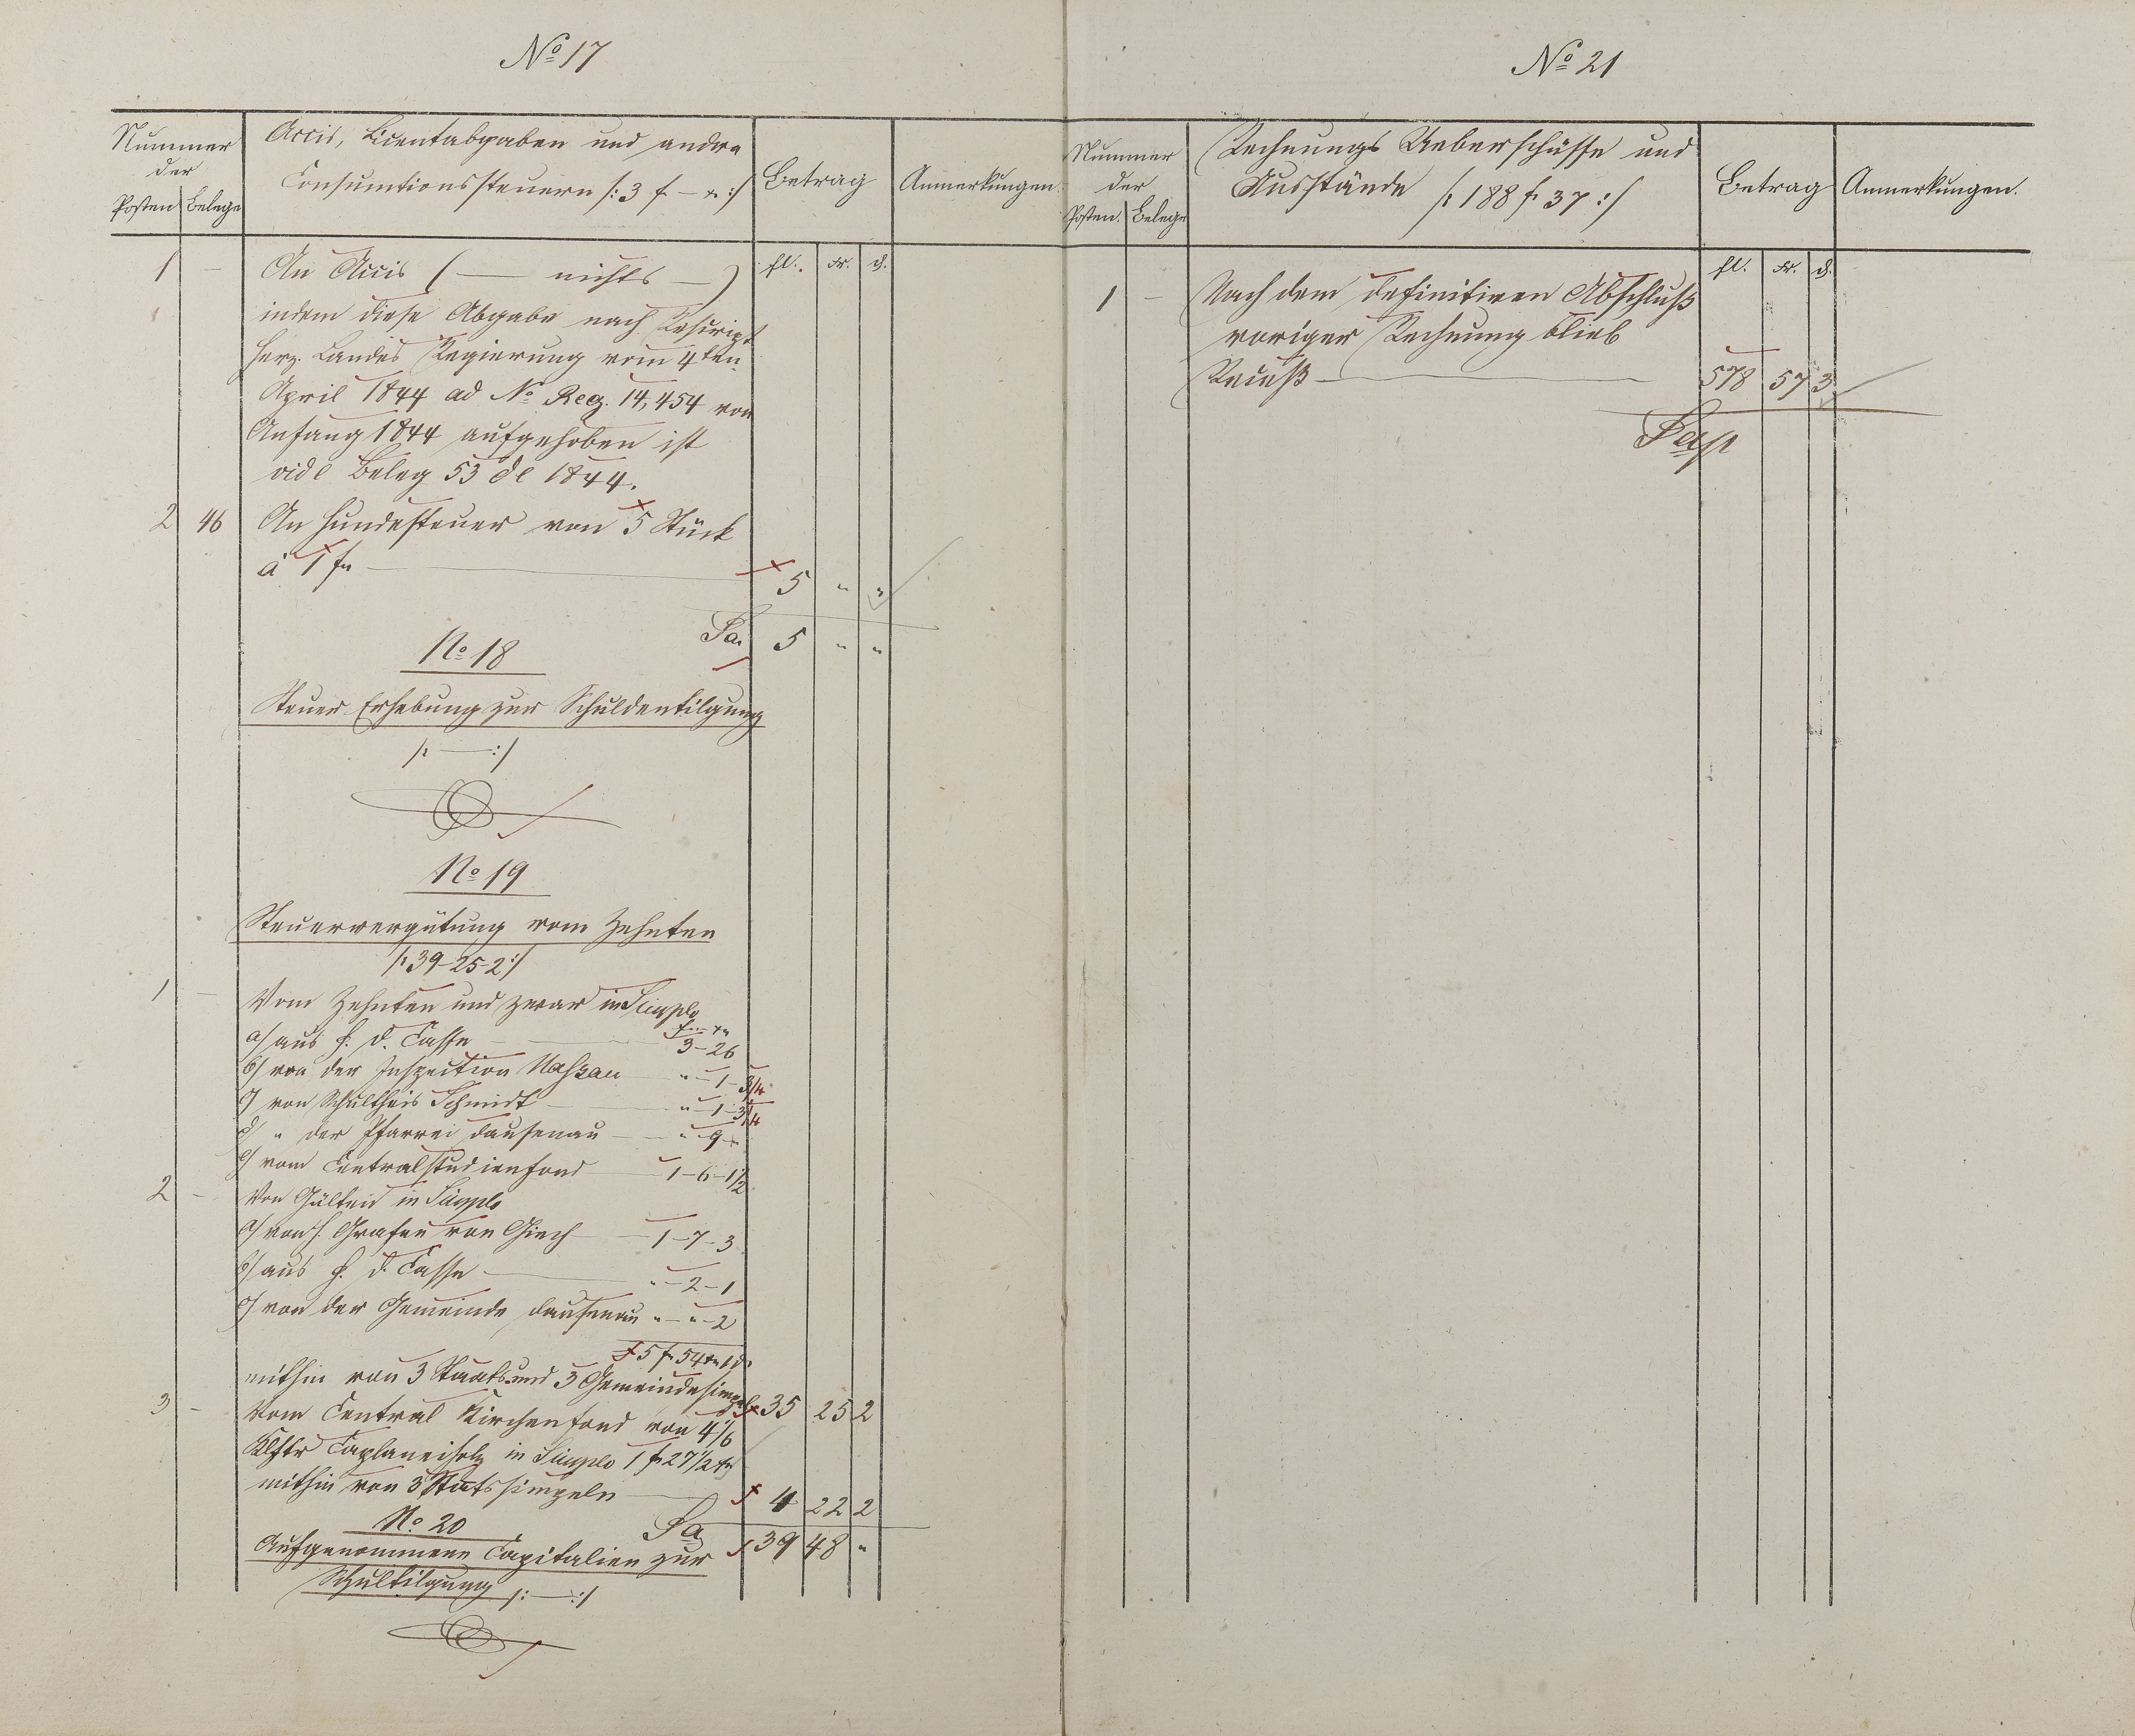 No 17
Nummer
der
Posten Belege
Accis, Licentabgaben und andre
Consumtionssteuern /: 3 f — x :/
Betrag
Anmerkungen
fl. Xr. d.
1 — An Accis ( — nichts — )
indem diese Abgabe nach Rescript
Herz. Landes Regierung vom 4ten
April 1844 ad No Reg. 14,454 von
Anfang 1844 aufgehoben ist
vide Beleg 53 de 1844.
2 46 An Hundesteuer von 5 Stück
à 1 f — 5 " "
Sa. 5 " "
No 18
Steuer Erhebung zur Schuldentilgung
/: — :/
No 19
Steuervergütung vom Zehnten
/: 39-25-2 :/
1 — Vom Zehnten und zwar in Simplo
a/ aus H. D. Casse — 3-26
b/ von der Inspection Nassau " - 1 - 3/4
c/ von Schultheis Schmidt — " - 1 - 3/4
d/ " der Pfarrei Dausenau — " - 9 -
e/ vom Centralstudienfond — 1-6-1/2
2 — Von Gülten in Simplo
a/ von H. Grafen von Giech — 1-7-3
b/ aus H. D. Casse — " - 2 - 1
c/ von der Gemeinde Dausenau " - " - 2
5 f 54 x 1 d
mithin von 3 Staats und 3 Gemeindesimpl 35 25 2
3 — Vom Central Kirchenfond von 4 1/6
Klftr Caplaneiholz in Simplo 1 f 27 1/2 x
mithin von 3 Statssimpeln — 4 22 2
Sa 39 48 "
No 20
Aufgenommene Capitalien zur
Schultilgung /: — :/
No 21
Nummer
der
Posten. Belege
Rechnungs Ueberschüsse und
Ausstände /: 188 f 37 :/
Betrag
Anmerkungen.
fl. Xr. d.
1 — Nach dem definitiven Abschluß
voriger Rechnung blieb
Receß — 578 57 3